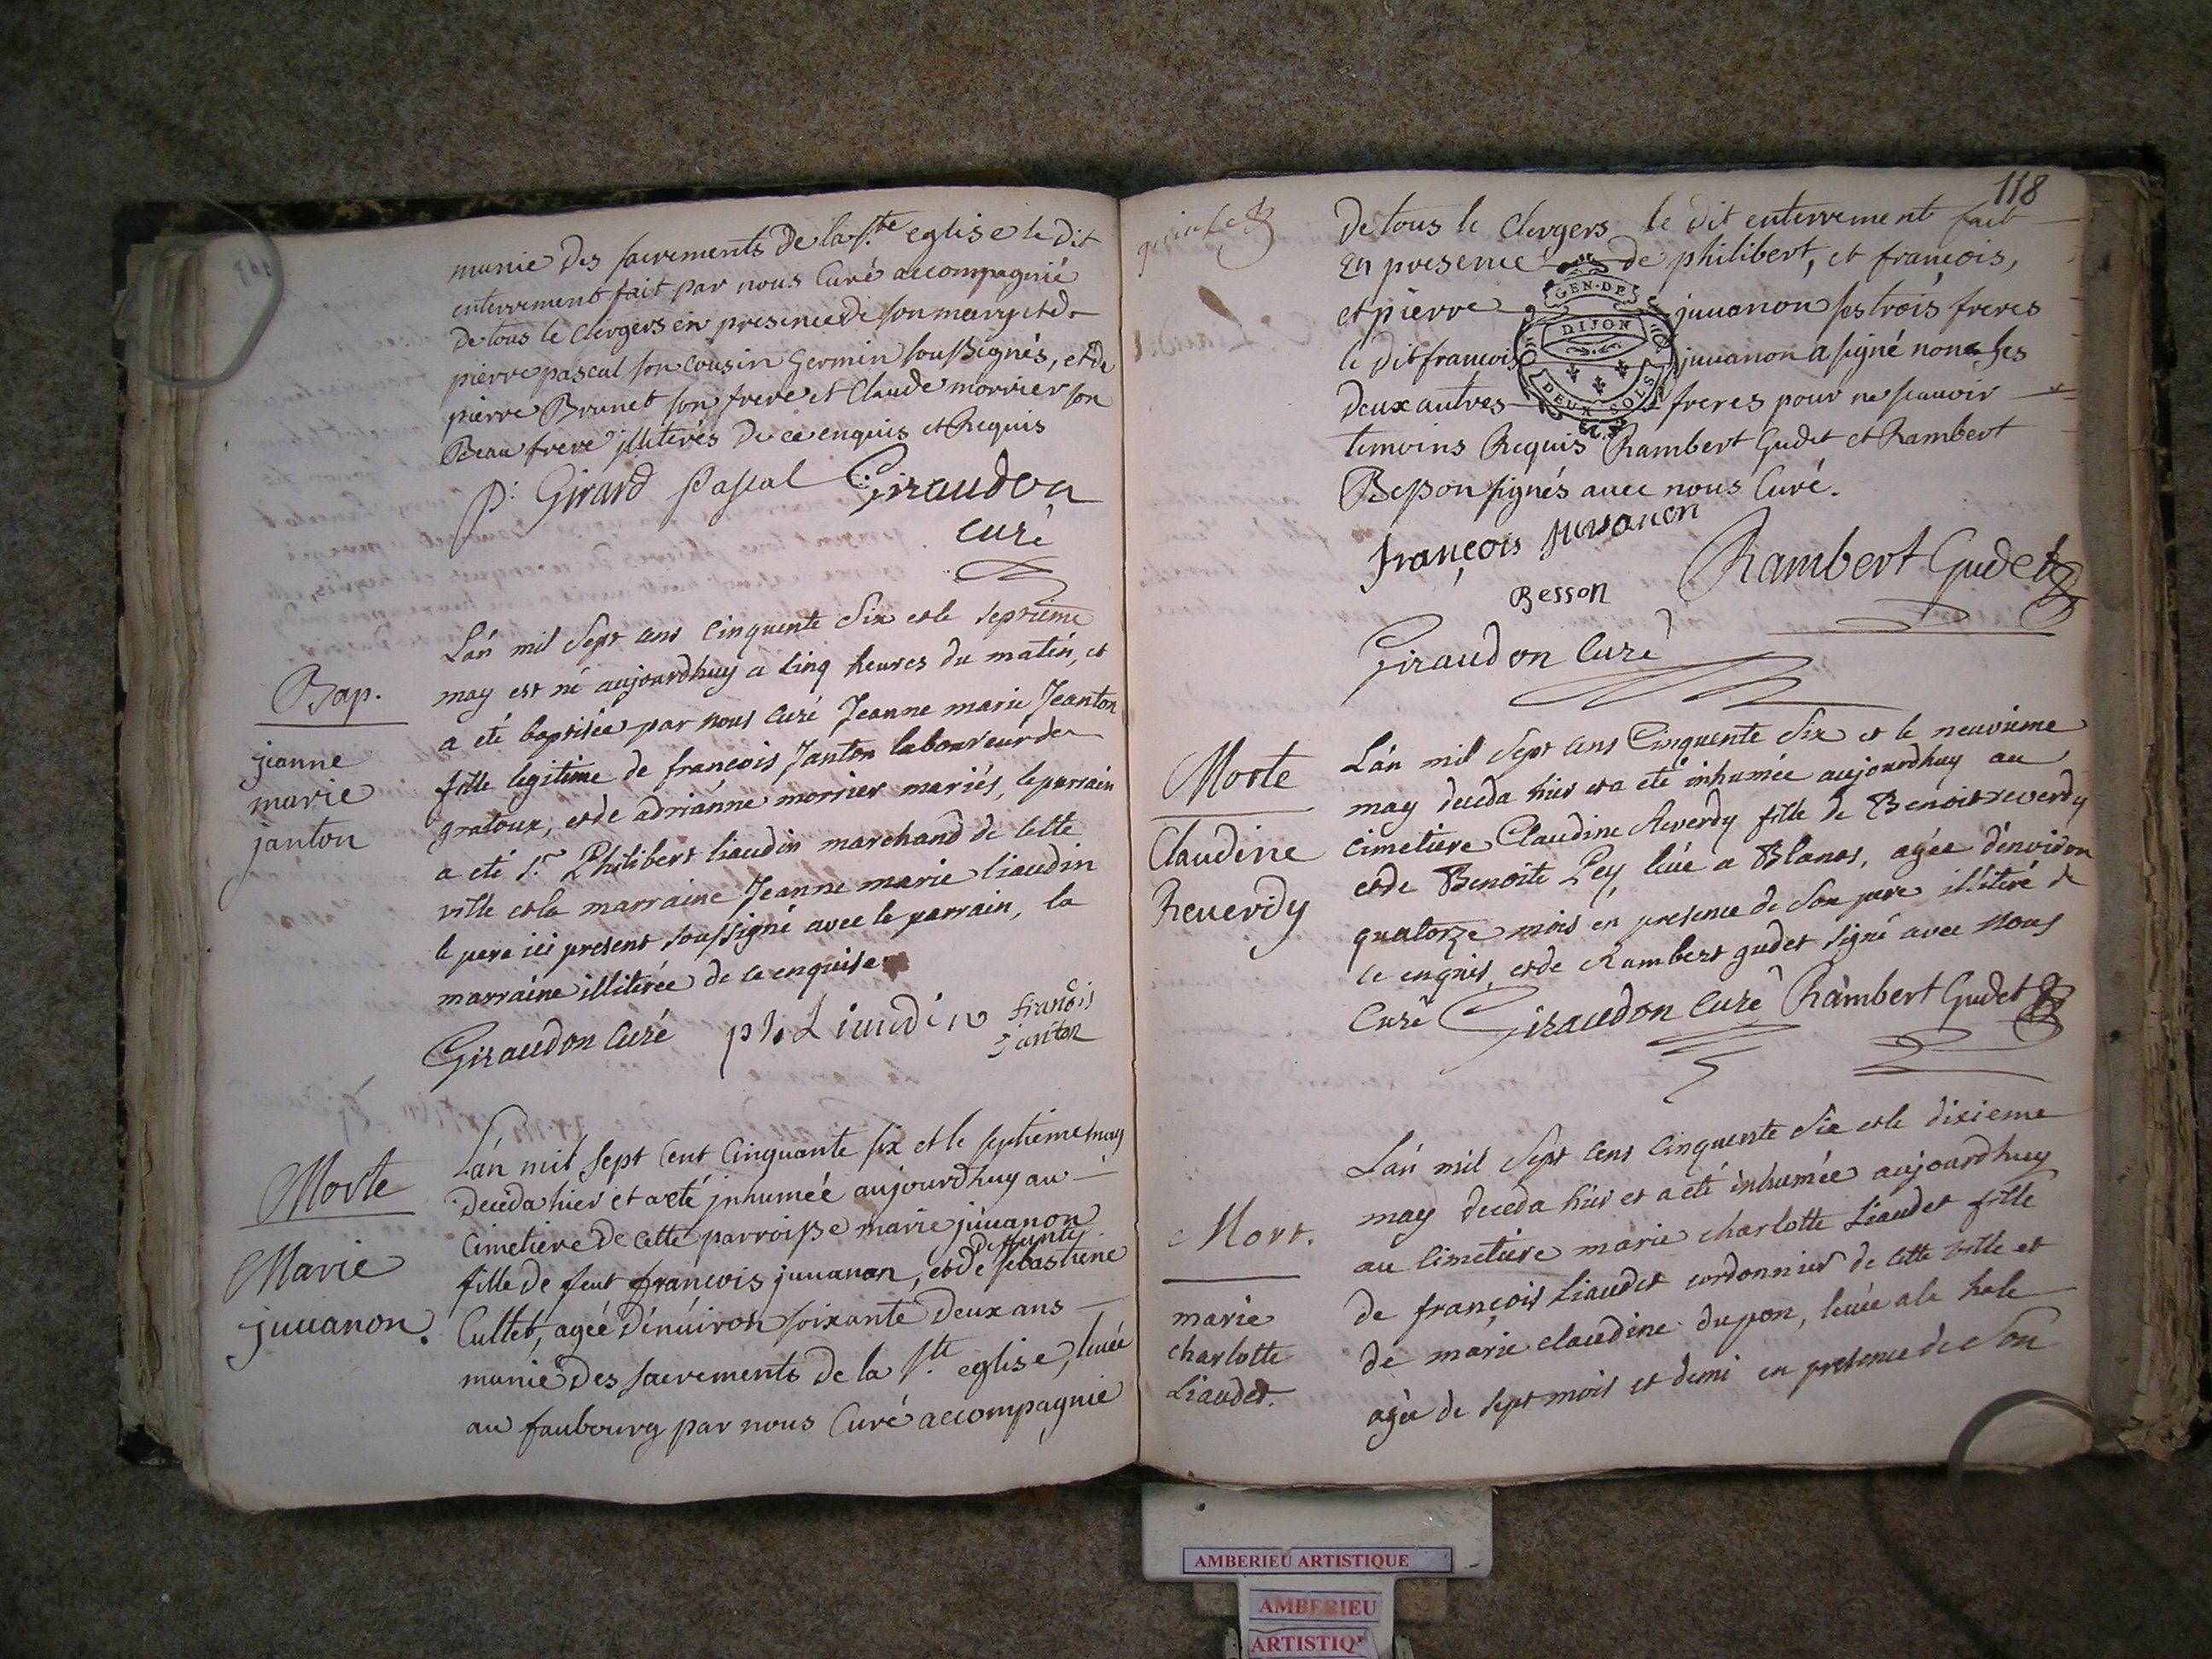 munie des sacrements de la s.te eglise le dit
enterrement fait par nous Curé accompagnié
de tous le Clergers en presence de son mary et de
pierre pascal son cousin Germin soussignés, et de
pierre Brunet son frere et Claude morrier son
Beau frere illiterés de ce enquis et Requis
P. Girard Pascal Giraudon
curé
Bap.
jeanne
marie
janton
L'an mil sept cens cinquente six et le septieme
may est né aujourdhuy a cinq heures du matin, et
a eté baptisée par nous curé Jeanne marie Jeanton
fille legitime de francois Janton laboureur de
gratoux, et de adrianne morrier mariés, le parrain
a eté s.r Philibert liaudin marchand de cette
ville et la marraine Jeanne marie liaudin
le pere ici present soussigné avec le parrain, la
marraine illiterée de ce enquise
Giraudon curé ph. Liaudin françois
janton
Morte
Marie
juuanon.
L'an mil sept cent cinquante six et le septieme may
deceda hier et a eté inhumée aujourdhuy au
cimetiere de cette parroisse marie juuanon
deffunte
fille de feut françois juuanon, et de sebastiene
Cullet, agée d'enuiron soixante deux ans
munie des sacrements de la s.te eglise, leuée
au faubourg par nous Curé accompagnié
118
de tous le Clergers le dit enterrement fait
en presence de philibert, et francois,
et pierre juuanon ses trois freres
le dit francois juuanon a signé non ses
deux autres freres pour ne scauoir
temoins Requis Rambert Gudet et Rambert
Besson signés auec nous Curé.
GEN. DE
DIJON
DEUX SOLS
françois juuanon
Besson Rambert Gudet
Giraudon curé
Morte
Claudine
Reuerdy
L'an mil sept cens cinquente six et le neuvieme
may deceda hier et a eté inhumée aujourdhuy au
cimetiere Claudine Reverdy fille de Benoit reverdy
et de Benoite Pey, leuée a Blanas, agée d'environ
quatorze mois en presence de son pere illiteré de
ce enquis, et de Rambert gudet signé avec nous
Curé Giraudon curé Rambert Gudet
Mort.
marie
charlotte
Liaudet.
L'an mil sept cens cinquente six et le dixieme
may deceda hier et a eté inhumée aujourdhuy
au cimetiere marie charlotte Liaudet fille
de françois Liaudet cordonnier de cette ville et
de marie claudine dupon, leuée a la hale
agée de sept mois et demi en presence de son
AMBERIEU ARTISTIQUE
AMBERIEU
ARTISTIQ